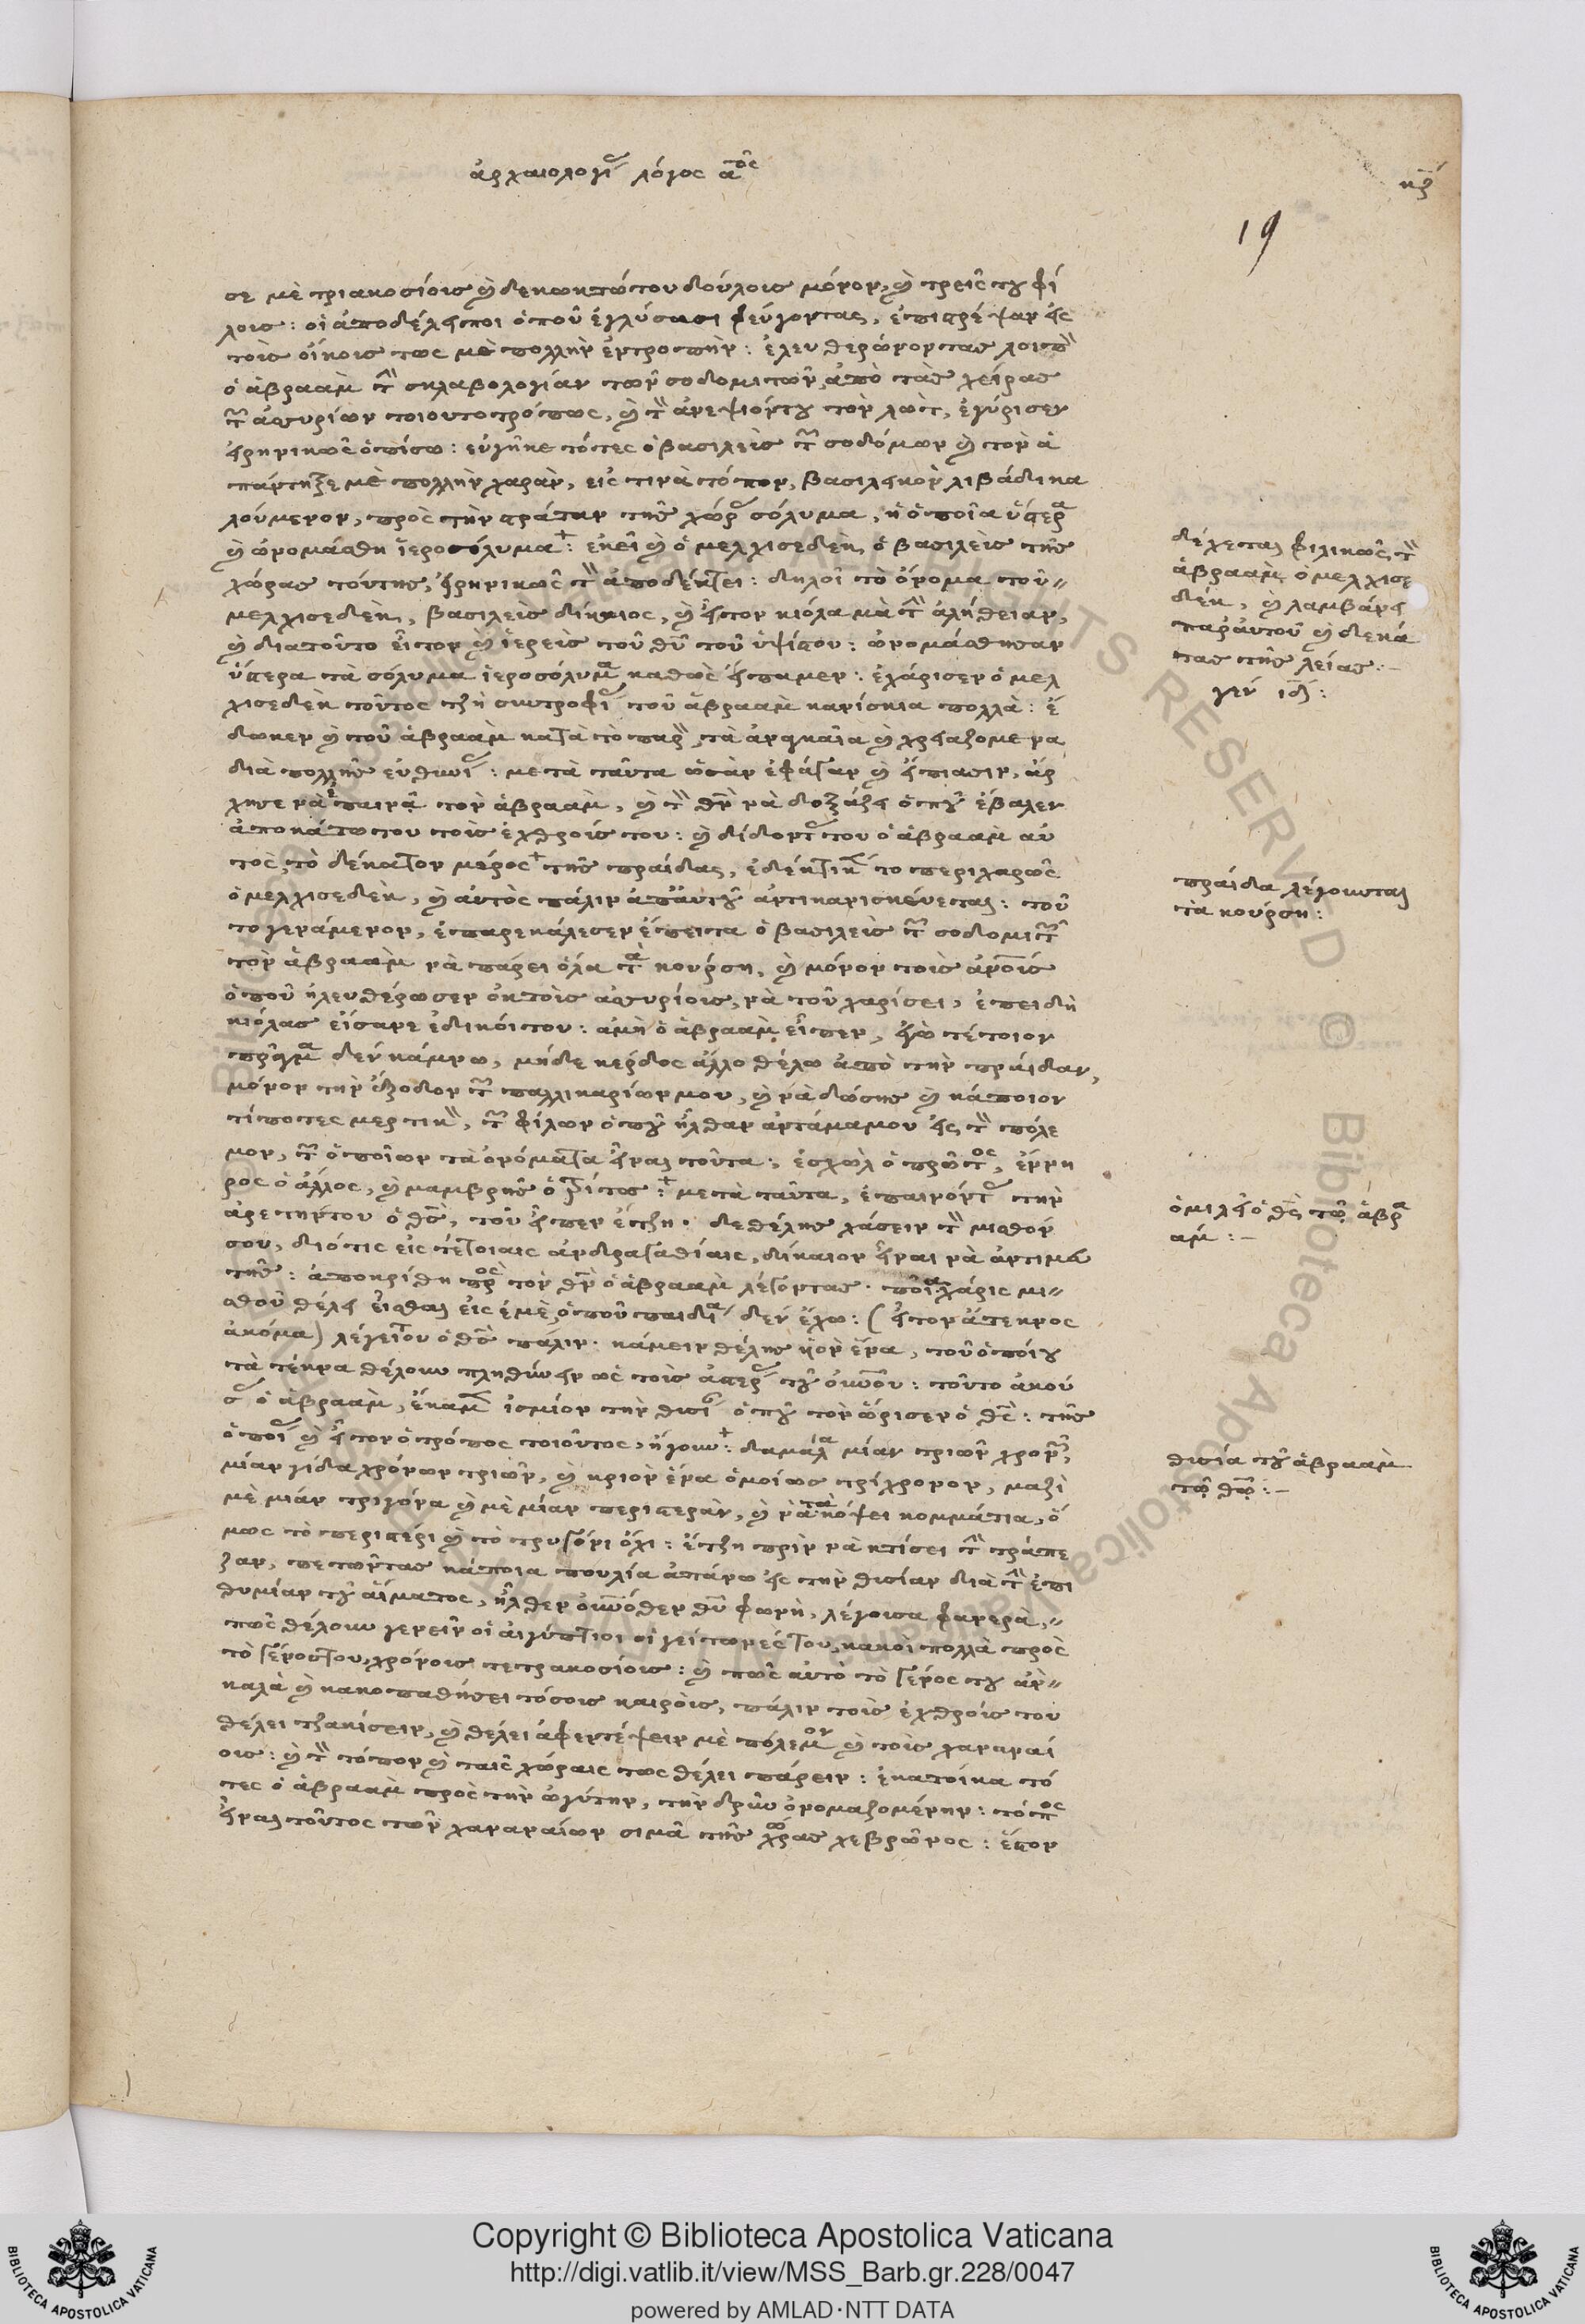 ἀρχαιολογίας λόγος αος
κζ
19
σε μὲ τριακοσίοις καὶ δεκωκτώτου δούλοις μόνον, καὶ τρεῖς του φί
λοις: οἱ ἀποδέλοιποι ὁποῦ ἐγλύσωσι φεύγοντας, ἐπιστρέψαν εἰς
τοὶς οἴκοις τως μὲ πολλὴν ἐντροπὴν: ἐλευθερώνοντας λοιπὸν
ὁ ἀβραὰμ τὴν σκλαβολογίαν τῶν σοδομιτῶν, ἀπὸ τὰς χεῖρας
τῶν ἀσσυρίων τοιουτοτρόπως, καὶ τὸν ἀνεψιόντου τὸν λὼτ, ἐγύρισεν
εἰρηνικῶς ὀπίσω: εὐγῆκε τότες ὁ βασιλεὶς τῶν σοδόμων καὶ τὸν ἀ
πάντηξε μὲ πολλὴν χαρὰν, εἰς τινὰ τόπον, βασιλεικὸν λιβάδι κα
λούμενον, πρὸς τὴν στράταν τῆς χώρας σόλυμα, ἡ ὁποῖα ὕστερα
καὶ ὠνομάσθη ἱεροσόλυμα: ἐκεῖ καὶ ὁ μελχισεδὲκ, ὁ βασιλεὶς τῆς
χώρας τούτης, εἰρηνικῶς τὸν ἀποδέκτει: δηλοῖ τὸ ὄνομα τοῦ
μελχισεδὲκ, βασιλεὶς δίκαιος, καὶ εἶτον κιόλα μὰ τὴν ἀλήθειαν,
καὶ διατοῦτο εἶτον καὶ ἱερεὶς τοῦ θυ τοῦ ὑψίστου: ὠνομάσθησαν
ὕστερα τὰ σόλυμα ἱεροσόλυμα καθὼς εἴπαμεν: ἐχάρισεν ὁ μελ
χισεδὲκ τοῦτος τζῆ συντροφίας τοῦ ἀβραὰμ κανίσκια πολλὰ: ἔ
δωκεν καὶ τοῦ ἀβραὰμ κατὰ τὸ παρὸν, τὰ ἀναγκαῖα καὶ χρειαζομενα
διὰ πολλῆς εὐθυνίας: μετὰ ταῦτα ὡσὰν ἐφάγαν καὶ ἔπιασιν, ἄρ
χησε νὰ ἐπαινᾷ τὸν ἀβραὰμ, καὶ τὸν θν νὰ δοξάζει ὁπου ἔβαλεν
ἀποκάτω του τοὶς ἐχθροίς του: καὶ δίδοντας του ὁ ἀβραὰμ αὐ
τὸς, τὸ δέκατον μέρος τῆς πραίδας, ἐδέκτικεν το περιχαρῶς
ὁ μελχισεδὲκ, καὶ αὐτὸς πάλιν ἀπαὐτου ἀντικανισκεύεται: τοῦ
το γενάμενον, ἐπαρεκάλεσεν ἔπειτα ὁ βασιλεὶς τῶν σοδομιτῶν
τὸν ἀβραὰμ νὰ πάρει ὅλα τὰ κούρση, καὶ μόνον τοὶς ανοις
ὁποῦ ἠλευθέρωσεν ἐκ τοὶς ἀσσυρίοις, νὰ τοῦ χαρίσει, ἐπειδὴ
κιόλας εἴσανε ἐδικοίτου: ἀμὴ ὁ ἀβραὰμ εἶπεν, ἐγὼ τέτοιον
πρᾶγμα δεν κάμνω, μήδε κερδος ἄλλο θέλω ἀπὸ τὴν πραίδαν,
μόνον τὴν ἔξοδον τῶν παλλικαρίων μου, καὶ νὰ δώσης καὶ κάποιον
τίποτες μερτικὸν, τῶν φίλων ὁπου ἦλθαν ἀντάμαμου εἰς τὸν πόλε
μον, τῶν ὁποῖων τὰ ὀνόματα εἶναι τοῦτα: ἐσχὼλ ὁ πρῶτος, ἔννη
ρος ὁ ἄλλος, καὶ μαμβρῆς ὁ τρίτος: μετὰ ταῦτα, ἐπαινόντας τὴν
ἀρετήντου ὁ θς, τοῦ εἶπεν ἔτζη· δε θέλης χάσειν τὸν μισθόν
σου, διότις εἰς τέτοιαις ἀνδραγαθίαις, δίκαιον εἶναι νὰ ἀντιμα
τῆς: ἀποκρίθη πρὸς τὸν θν ὁ ἀβραὰμ λέγοντας· ποῖα χάρις μι
σθοῦ θέλει εἶσθαι εἰς ἐμὲ, ὁποῦ παιδία δεν ἔχω: (εἶτον ἄτεκνος
ἀκόμα) λέγειτου ὁ θς πάλιν· κάμειν θέλης ὑὸν ἕνα, τοῦ ὁποίου
τὰ τέκνα θέλουν πληθύνειν ὡς τοὶς ἀστερας του ουνου: τοῦτο ἀκού
σας ὁ ἀβραὰμ, ἔκαμεν ἰσμίον τὴν θυσίαν ὁπου τὸν ὥρισεν ὁ θς: τῆς
ὁποίας καὶ εἶτον ὁ τρόπος τοιοῦτος, ἤγουν: δαμάλα μίαν τριῶν χρονῶν,
μίαν γίδα χρόνων τριῶν, καὶ κριὸν ἕνα ὁμοίως τρίχρονον, μαζὶ
μὲ μιάν τριγόνα καὶ μὲ μίαν περιστερὰν, καὶ νὰ τὰ κόψει κομμάτια, ὅ
μως τὸ περιστέρι καὶ τὸ τρυγόνι ὄχι: ἔτζη πρὶν νὰ κτίσει τὴν τράπε
ζαν, πετωντας κάποια πουλία ἀπάνω εἰς τὴν θυσίαν διὰ τὴν ἐπι
θυμίαν του αἵματος, ἦλθεν ουνόθεν θυ φωνὴ, λέγουσα φανερὰ,
πῶς θέλουν γενεῖν οἱ αἰγύπτιοι οἱ γείτονές του, κακοὶ πολλὰ πρὸς
τὸ γένοςτου, χρόνοις τετρακοσίοις: καὶ πῶς αὐτὸ τὸ γένος του ἂν
καλὰ καὶ κακοπαθήσει τόσοις καιροὶς, πάλιν τοὶς ἐχθροίς του
θέλει τζακίσειν, καὶ θέλει ἀφεντέψειν μὲ πόλεμον καὶ τοὶς χαναναί
οις: καὶ τὸν τόπον καὶ ταὶς χώραις τως θέλει πάρειν: ἐκατοίκα τό
τες ὁ ἀβραὰμ πρὸς τὴν ὠγύγην, τὴν δρῦν ὀνομαζομένην: τόπος
εἶναι τοῦτος τῶν χαναναίων σιμᾶ τῆς χώρας χεβρῶνος: ἔστον
δέχεται φιλικῶς τὸν
ἀβραὰμ ὁ μελχισε
δέκ, καὶ λαμβάνει
παρ' αὐτοῦ καὶ δεκά
τας τῆς λείας:
γεν ιδ:
πραίδα λέγουνται
τὰ κούρση:
ὁμιλεῖ ὁ θς τῷ ἀβρα
αμ:
θυσία του ἀβραὰμ
τῷ θῷ:
Copyright © Biblioteca Apostolica Vaticana
http://digi.vatlib.it/view/MSS_Barb.gr.228/0047
powered by AMLAD·NTT DATA
BIBLIOTECA APOSTOLICA VATICANA
BIBLIOTECA APOSTOLICA VATICANA